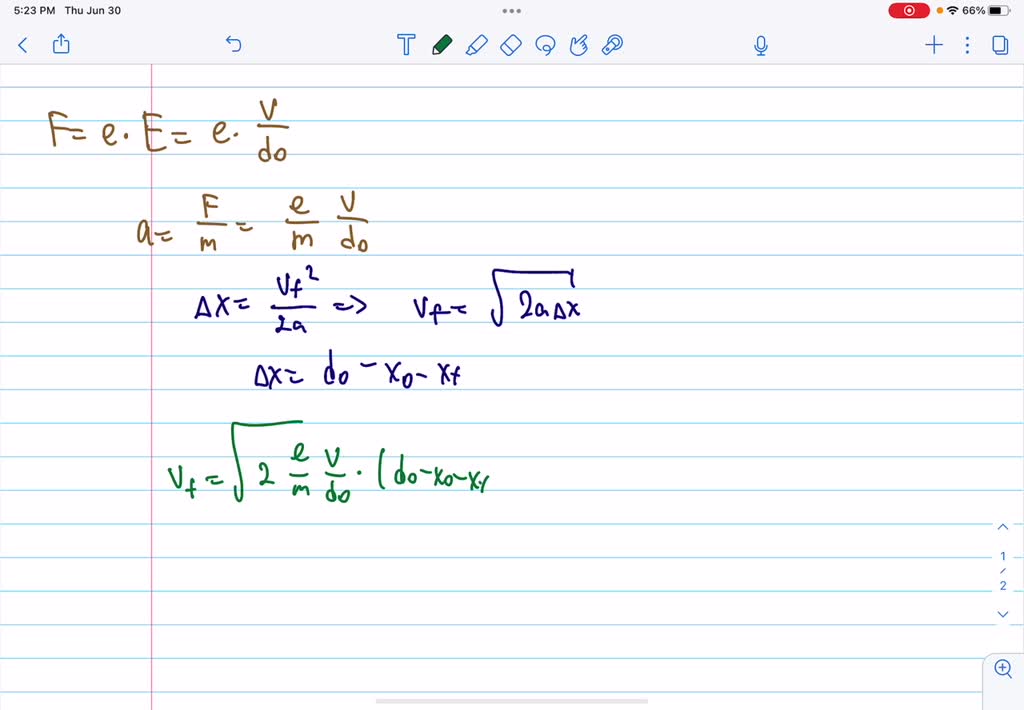 5:23 PM Thu Jun 30
66%
F = e · E = e · V/d₀
a = F/m = e/m V/d₀
Δx = V_f²/2a => V_f = √2aΔx
Δx = d₀ - x₀ - x_f
V_f = √2 e/m V/d₀ · (d₀ - x₀ - x_f
1
/
2